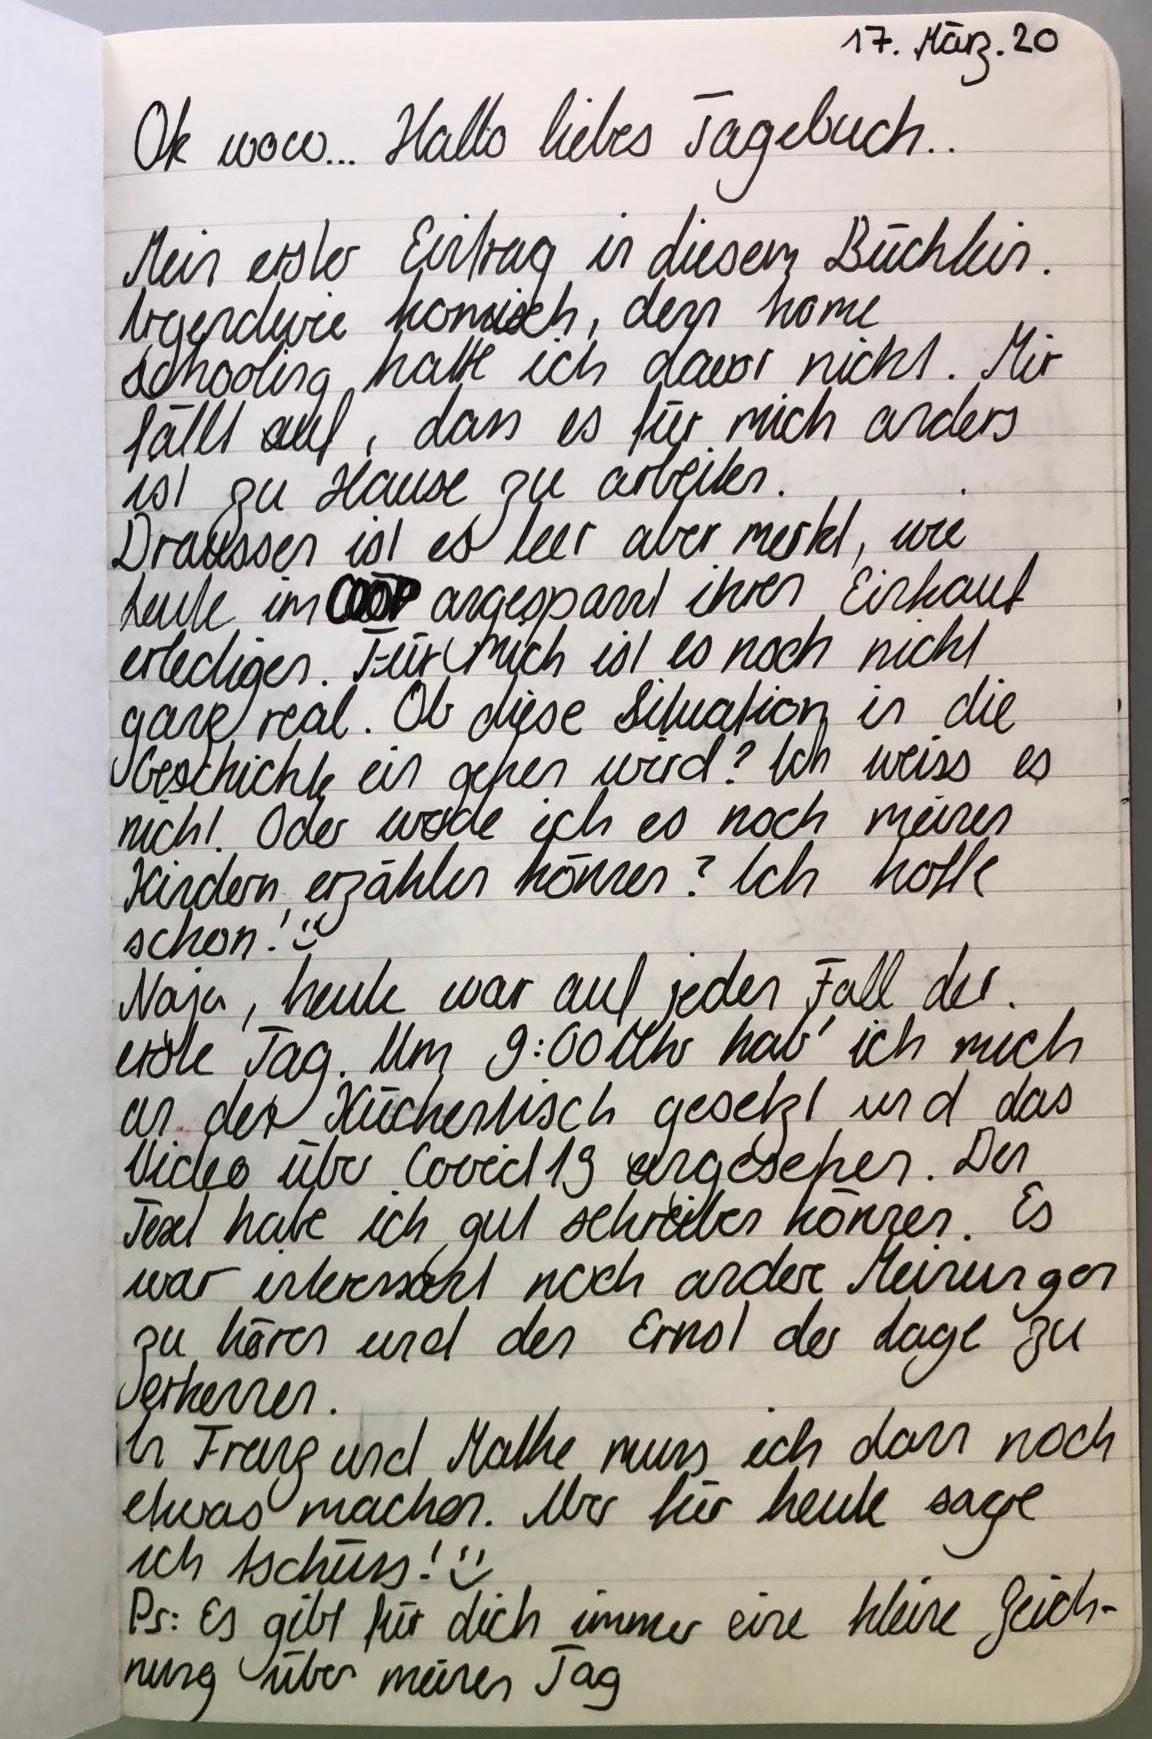 17. März. 20
Ok wow... Hallo liebes Tagebuch..
Mein erster Eintrag in diesem Büchlein.
Irgendwie komisch, denn home
schooling hatte ich davor nicht. Mir
fällt auf, dass es für mich anders
ist zu Hause zu arbeiten.
Draussen ist es leer aber merkt, wie
Leute im COOP angespannt ihren Einkauf
erledigen. Für mich ist es noch nicht
ganz real. Ob diese Situation in die
Geschichte ein gehen wird? Ich weiss es
nicht. Oder werde ich es noch meinen
Kindern erzählen können? Ich hoffe
schon! :)
Naja, heute war auf jeden Fall der.
erste Tag. Um 9:00 Uhr hab' ich mich
an den Küchentisch gesetzt und das
Video über Covid19 angesehen. Den
Text habe ich gut schreiben können. Es
war interessant noch andere Meinungen
zu hören und den Ernst der Lage zu
erkennen.
In Franz und Mathe muss ich dann noch
etwas machen. Aber für heute sage
ich tschüss! :)
Ps: Es gibt für dich immer eine kleine Zeich-
nung über meinen Tag